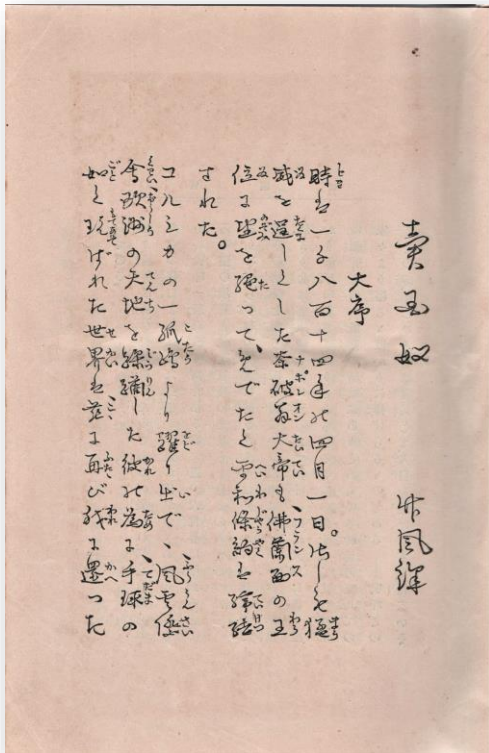 賣国奴
竹風譯
大序
時は一千八百十四年の四月一日。さしも猛
威を逞しくした奈破翁大帝も佛蘭西の王
位に望を絶って、めでたく平和條約は締結
された。
コルシカの一孤島より躍り出で、風雲際
會歐洲の天地を蹂躙した彼の為に手球の
如く玩ばれた世界は茲に再び我に還った